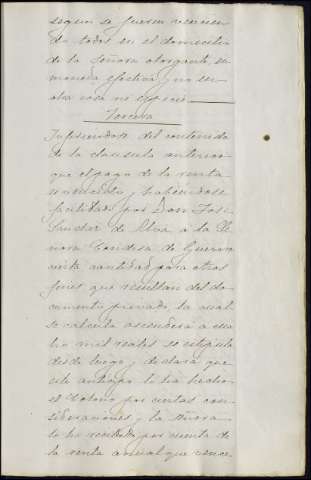 segun se fueren vencien
do todos en el domicilio
de la Señora otorgante, en
moneda efectiva y no en
otra cosa ni especie
Tercera
Infiriendose del contenido
de la clausula anterior
que el pago de la renta
y habiendose
facilitado por Don José
Sanchez de Alva a la Se
ñora Condesa de Guevara
cierta cantidad para otros
fines que resultan del do
cumento privado, la cual
se calcula ascendera a cua
tro mil reales se estipula
desde luego y declara que
este anticipo lo ha hecho
el Colono por ciertas con
sideraciones y la Señora
lo ha recibido por cuenta de
la renta anual que vence